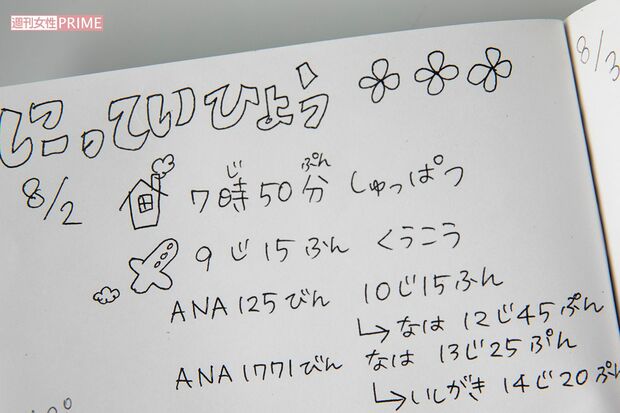 週刊女性PRIME
にっていひょう
8/3
8/2
7時50分 しゅっぱつ
じ ぷん
9じ15ふん くうこう
ANA125びん 10じ15ふん
→なは 12じ45ぷん
ANA1771びん なは 13じ25ぷん
→いしがき 14じ20ぷん